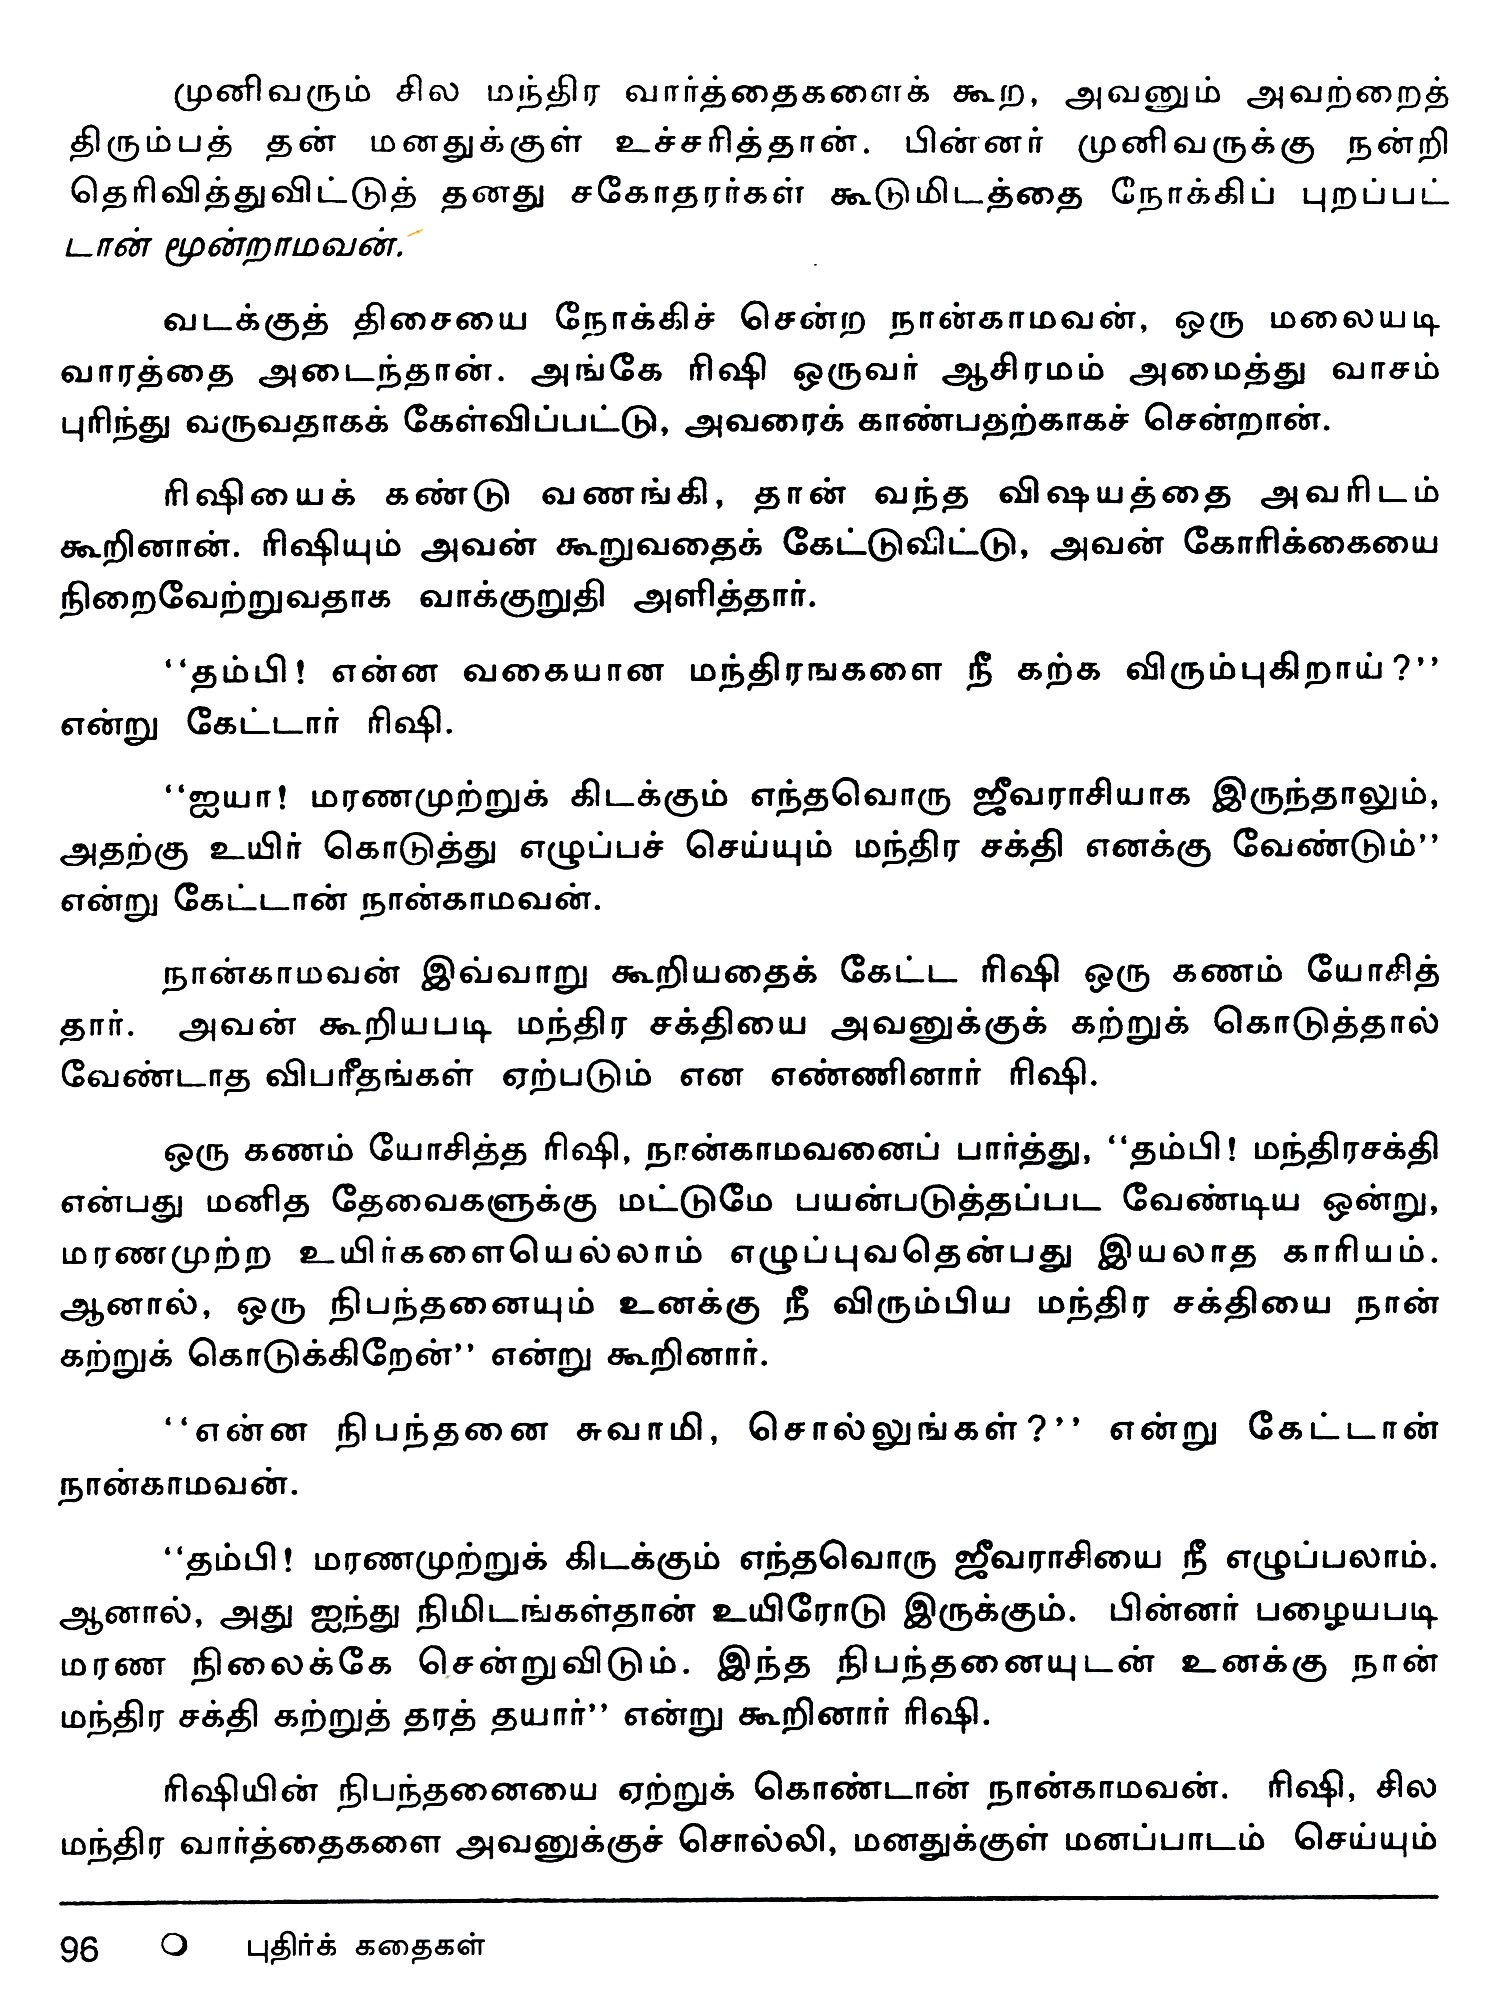 முனிவரும் சில மந்திர வார்த்தைகளைக் கூற, அவனும் அவற்றைத்
திரும்பத் தன் மனதுக்குள் உச்சரித்தான். பின்னர் முனிவருக்கு நன்றி
தெரிவித்துவிட்டுத் தனது சகோதரர்கள் கூடுமிடத்தை நோக்கிப் புறப்பட்
டான் மூன்றாமவன்.
வடக்குத் திசையை நோக்கிச் சென்ற நான்காமவன், ஒரு மலையடி
வாரத்தை அடைந்தான். அங்கே ரிஷி ஒருவர் ஆசிரமம் அமைத்து வாசம்
புரிந்து வருவதாகக் கேள்விப்பட்டு, அவரைக் காண்பதற்காகச் சென்றான்.
ரிஷியைக் கண்டு வணங்கி, தான் வந்த விஷயத்தை அவரிடம்
கூறினான். ரிஷியும் அவன் கூறுவதைக் கேட்டுவிட்டு, அவன் கோரிக்கையை
நிறைவேற்றுவதாக வாக்குறுதி அளித்தார்.
‘‘தம்பி! என்ன வகையான மந்திரஙகளை நீ கற்க விரும்புகிறாய்?’’
என்று கேட்டார் ரிஷி.
‘‘ஐயா! மரணமுற்றுக் கிடக்கும் எந்தவொரு ஜீவராசியாக இருந்தாலும்,
அதற்கு உயிர் கொடுத்து எழுப்பச் செய்யும் மந்திர சக்தி எனக்கு வேண்டும்’’
என்று கேட்டான் நான்காமவன்.
நான்காமவன் இவ்வாறு கூறியதைக் கேட்ட ரிஷி ஒரு கணம் யோசித்
தார். அவன் கூறியபடி மந்திர சக்தியை அவனுக்குக் கற்றுக் கொடுத்தால்
வேண்டாத விபரீதங்கள் ஏற்படும் என எண்ணினார் ரிஷி.
ஒரு கணம் யோசித்த ரிஷி, நான்காமவனைப் பார்த்து, ‘‘தம்பி! மந்திரசக்தி
என்பது மனித தேவைகளுக்கு மட்டுமே பயன்படுத்தப்பட வேண்டிய ஒன்று,
மரணமுற்ற உயிர்களையெல்லாம் எழுப்புவதென்பது இயலாத காரியம்.
ஆனால், ஒரு நிபந்தனையும் உனக்கு நீ விரும்பிய மந்திர சக்தியை நான்
கற்றுக் கொடுக்கிறேன்’’ என்று கூறினார்.
‘‘என்ன நிபந்தனை சுவாமி, சொல்லுங்கள்?’’ என்று கேட்டான்
நான்காமவன்.
‘‘தம்பி! மரணமுற்றுக் கிடக்கும் எந்தவொரு ஜீவராசியை நீ எழுப்பலாம்.
ஆனால், அது ஐந்து நிமிடங்கள்தான் உயிரோடு இருக்கும். பின்னர் பழையபடி
மரண நிலைக்கே சென்றுவிடும். இந்த நிபந்தனையுடன் உனக்கு நான்
மந்திர சக்தி கற்றுத் தரத் தயார்’’ என்று கூறினார் ரிஷி.
ரிஷியின் நிபந்தனையை ஏற்றுக் கொண்டான் நான்காமவன். ரிஷி, சில
மந்திர வார்த்தைகளை அவனுக்குச் சொல்லி, மனதுக்குள் மனப்பாடம் செய்யும்
96 ❍ புதிர்க் கதைகள்